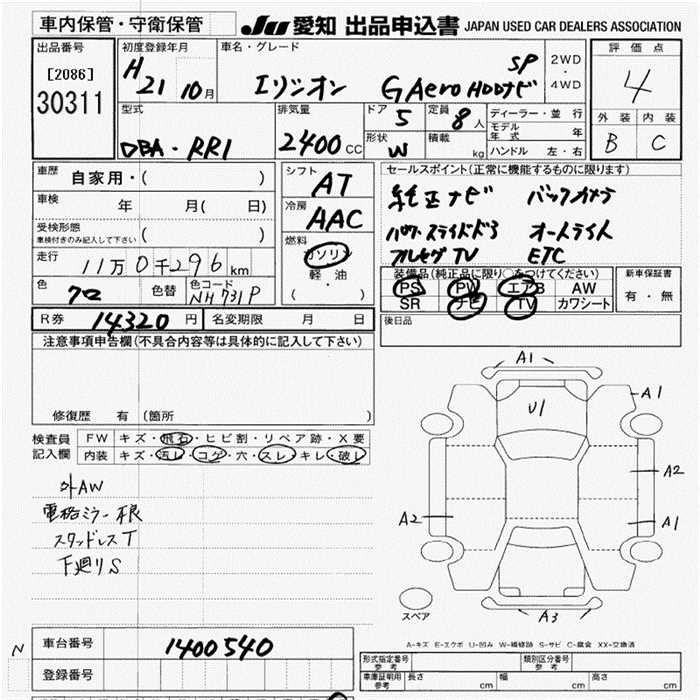 車内保管・守衛保管
JU 愛知 出品申込書 JAPAN USED CAR DEALERS ASSOCIATION
出品番号
[2086]
30311
初度登録年月
H21 10月
車名・グレード
エリシオン G Aero HDDナビ SP
2WD
・
4WD
評価点
4
外装 内装
B C
型式
DBA・RR1
排気量
2400 CC
ドア 5
形状 W
定員 8人
積載 kg
ディーラー・並行
モデル年式 年
ハンドル 左・右
車歴 自家用・( )
車検 年 月( 日)
受検形態
車検付きのみ記入して下さい ( )
走行 11万0千296km
色 クロ 色替 色コード NH731P
シフト AT
冷房 AAC
燃料
ガソリン
軽・油
( )
R券 14320円 名変期限 月 日
セールスポイント(正常に機能するものに限ります)
純正ナビ バックカメラ
パワースライドドア オートライト
フルセグTV ETC
装備品(純品正に限り○をつけてください)
PS PW エアB AW
SR ナビ TV カワシート
新車保証書
有・無
後日品
注意事項申告欄(不具合内容等は具体的に記入して下さい)
修復歴 有 (箇所
検査員記入欄
FW キズ・飛石・ヒビ割・リペア跡・X要
内装 キズ・汚レ・コゲ・穴・スレ・キレ・破レ
外AW
電格ミラー根
スタッドレスT
下廻りS
A1
U1
A1
A2
A2
A1
A3
スペア
A-キズ E-エクボ U-凹み W-補修跡 S-サビ C-腐食 XX-交換済
車台番号 1400540
N
登録番号
形式指定番号 参考
類別区分番号 参考
車庫証明用 参考 長さ cm 幅 cm 高さ cm